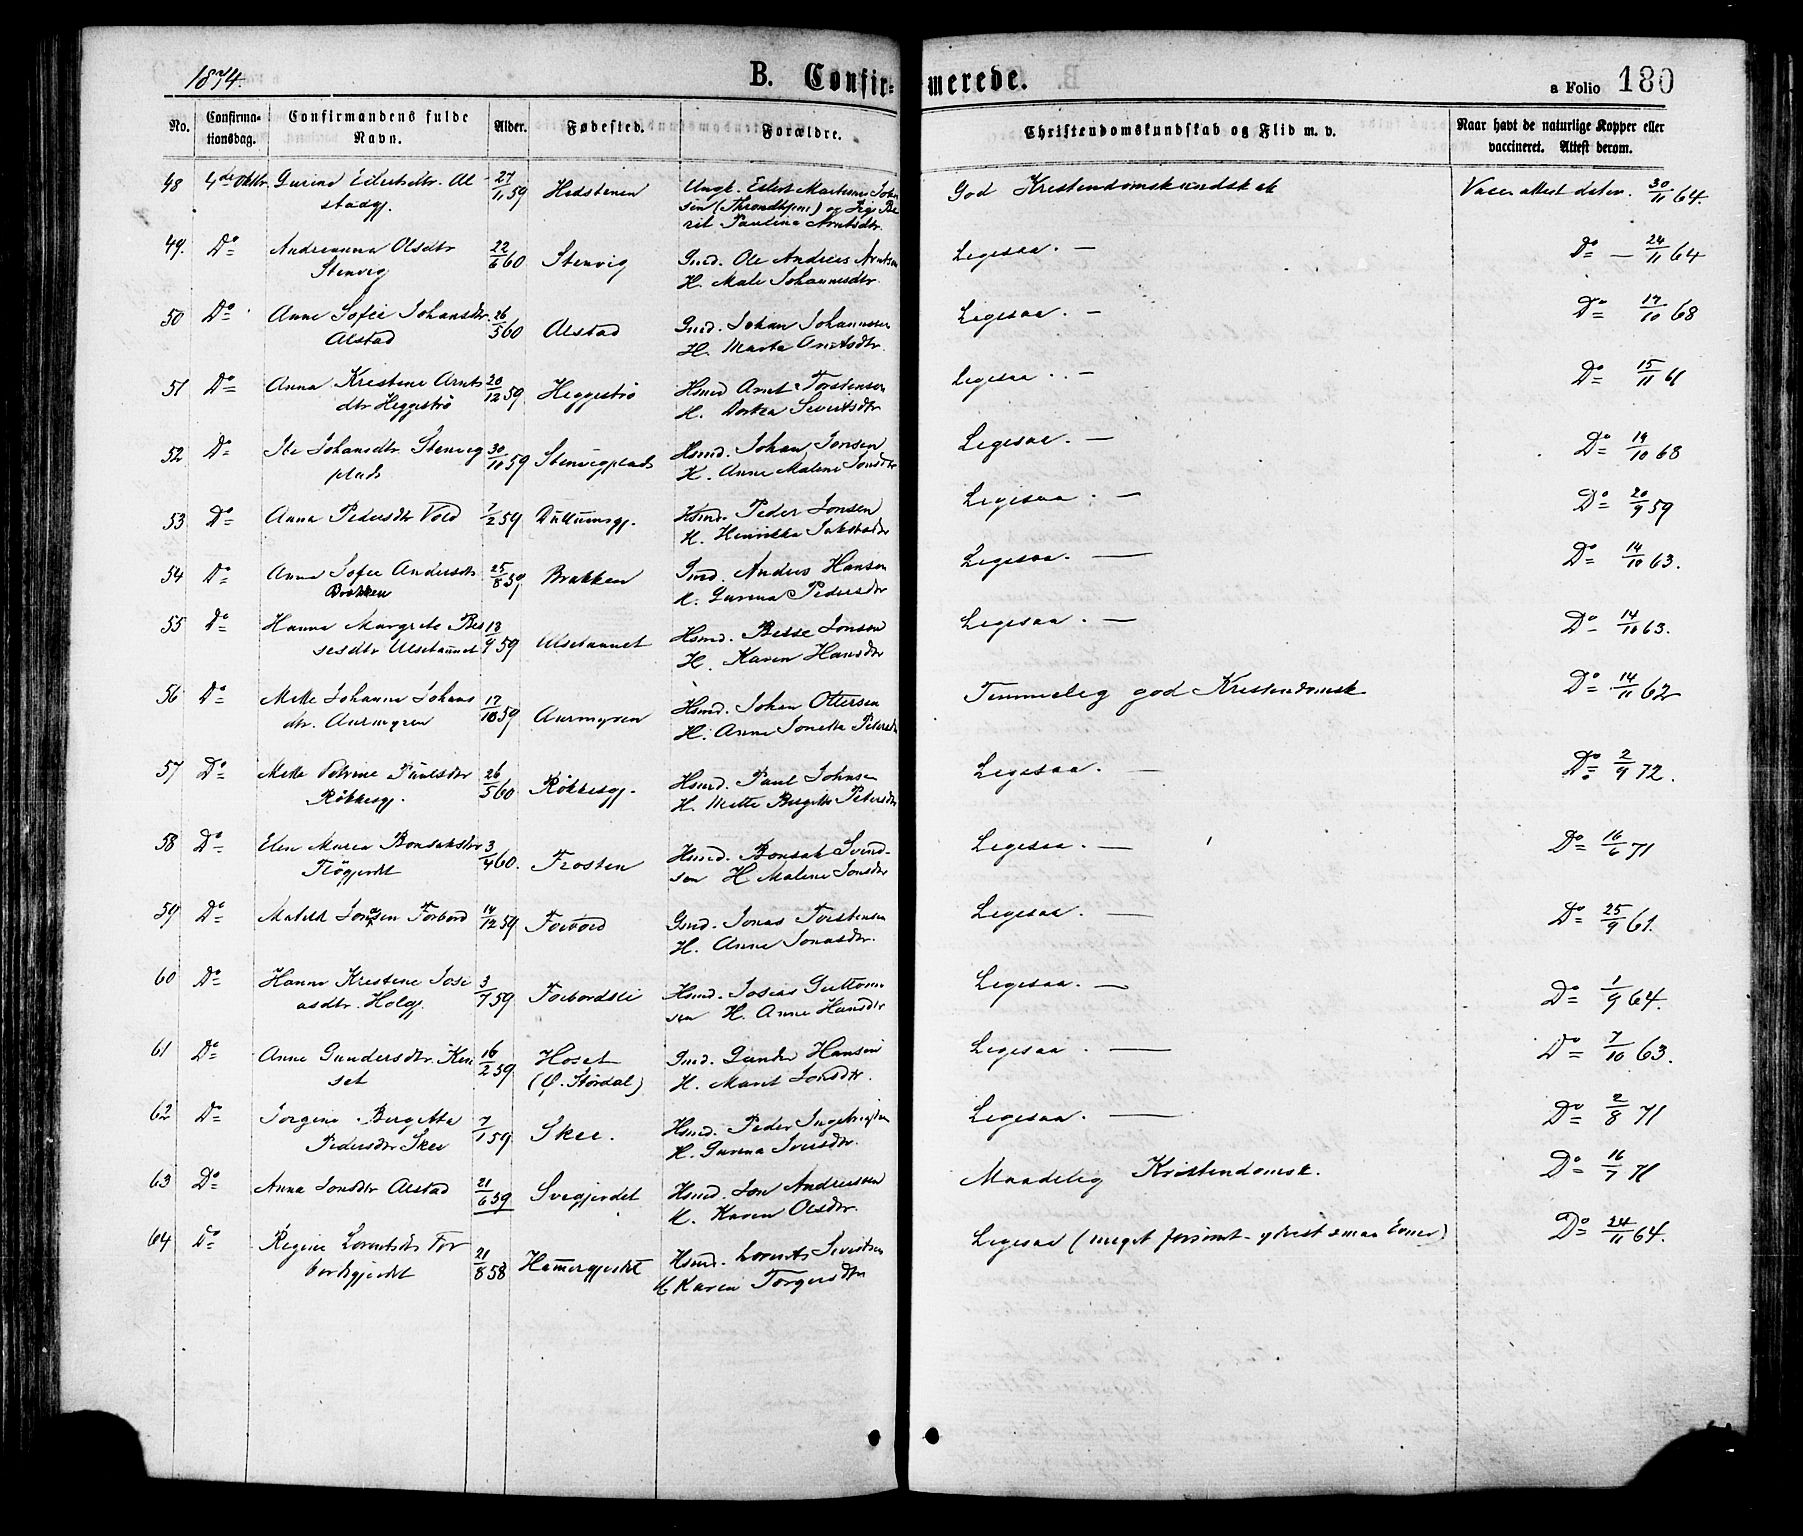 1874.
B. Confirmerede.
a Folio 180
No.
Confirmationsdag.
Confirmandens fulde Navn.
Alder.
Fødested.
Forældre.
Christendomskundskab og Flid m. v.
Naar havt de naturlige Kopper eller vaccineret. Attest derom.
48 4de Oktbr. Gurine Eilertsdtr. Al- 27/11 59 Hedstenen Ungk. Eilert Martinus Johan-
stadgj. sen (Throndhjem) og Pige Be-
rit Paulina Arntsdtr.
God Kristendomskundskab Vacc. attest dater. 30/11 64.
49. Do Andreanna Olsdtr 22/6 60 Stenvig Gmd. Ole Andreas Arntsen
Stenvig H. Male Johannesdtr.
Ligesaa. — Do — 24/11 64
50 Do Anne Sofie Johansdtr 26/5 60 Alstad Gmd. Johan Johannesen
Alstad H. Marta Arntsdtr.
Ligesaa. — Do 17/10 68
51 Do Anna Kristine Arnts 20/12 59 Heggestrø Hsmd Arnt Torstensen
dtr Heggestrø H. Dortea Sivertsdtr
Ligesaa. — Do 15/11 61
52 Do Johansdtr Stenvig 30/10 59 Stenvigplads Hsmd. Johan Jonsen
plads H. Anne Malene Jonsdtr
Ligesaa. — Do 19/10 68
53 Do Anna Pedersdtr Vold 7/2 59 Dullumsgj. Hsmd. Peder Jonsen
H. Henrikka Jakobsdtr
Ligesaa. — Do 20/9 59
54 Do Anna Sofie Andersdtr 25/8 59 Brækken Gmd. Anders Hansen
Brækken H. Gurina Pedersdtr
Ligesaa. — Do 14/10 63.
55 Do Hanna Margrete Bes 13/9 59 Ulsetaunet Hsmd. Besse Jonsen
sesdtr Ulsetaunet H. Karen Hansdtr
Ligesaa. — Do 14/10 63.
56 Do Mette Johanna Johans 17/10 59 Aurmyren Hsmd. Johan Ottersen
dtr. Aurmyren H. Anne Jonetta Petersdtr
Temmelig god Kristendomsk Do 14/11 62
57 Do Mette Petrine Paulsdtr 26/5 60 Røkkesgj. Hsmd. Paul Johnsen
Røkkesgj. H. Mette Bergitte Petersdtr
Ligesaa. — Do 2/9 72.
58 Do Elen Maria Bonsaksdtr 3/4 60. Frosten Hsmd. Bonsak Svend-
Fløgjerdet sen H Malene Jonsdtr
Ligesaa. — Do 16/6 71
59 Do Matild Jonasen Forbord 14/12 59 Forbord Gmd. Jonas Torstensen
H. Anne Jonasdtr.
Ligesaa. — Do 25/9 61.
60 Do Hanna Kristine Josi 3/7 59 Forbordsli Hsmd. Josias Guttorm
asdtr. Holgj. sen H. Anne Hansdtr
Ligesaa. — Do 1/9 64.
61 Do Anne Gundersdtr. Kin 16/2 59 Hoset Gmd. Gunder Hansen
set (Ø. Størdal) H. Marit Jonsdtr.
Ligesaa. — Do 7/10 63.
62 Do Jørgine Bergitta 7/1 59 Skei. Hsmd. Peder Ingebrigtsen
Pedersdtr Skei H. Gurina Iversdtr.
Ligesaa. — Do 2/8 71
63 Do Anna Jonsdtr Alstad 21/6 59 Svegjerdet Hsmd. Jon Andreasen
H. Karen Olsdtr.
Maadelig Kristendomsk. Do 16/7 71
64 Do Regine Lorentsdtr For 21/8 58 Hammergjerdet Hsmd. Lorents Sivertsen
bordsgjerdet H Karen Torgersdtr
Ligesaa (meget forsømt – yderst smaa Evner) Do 24/11 64.